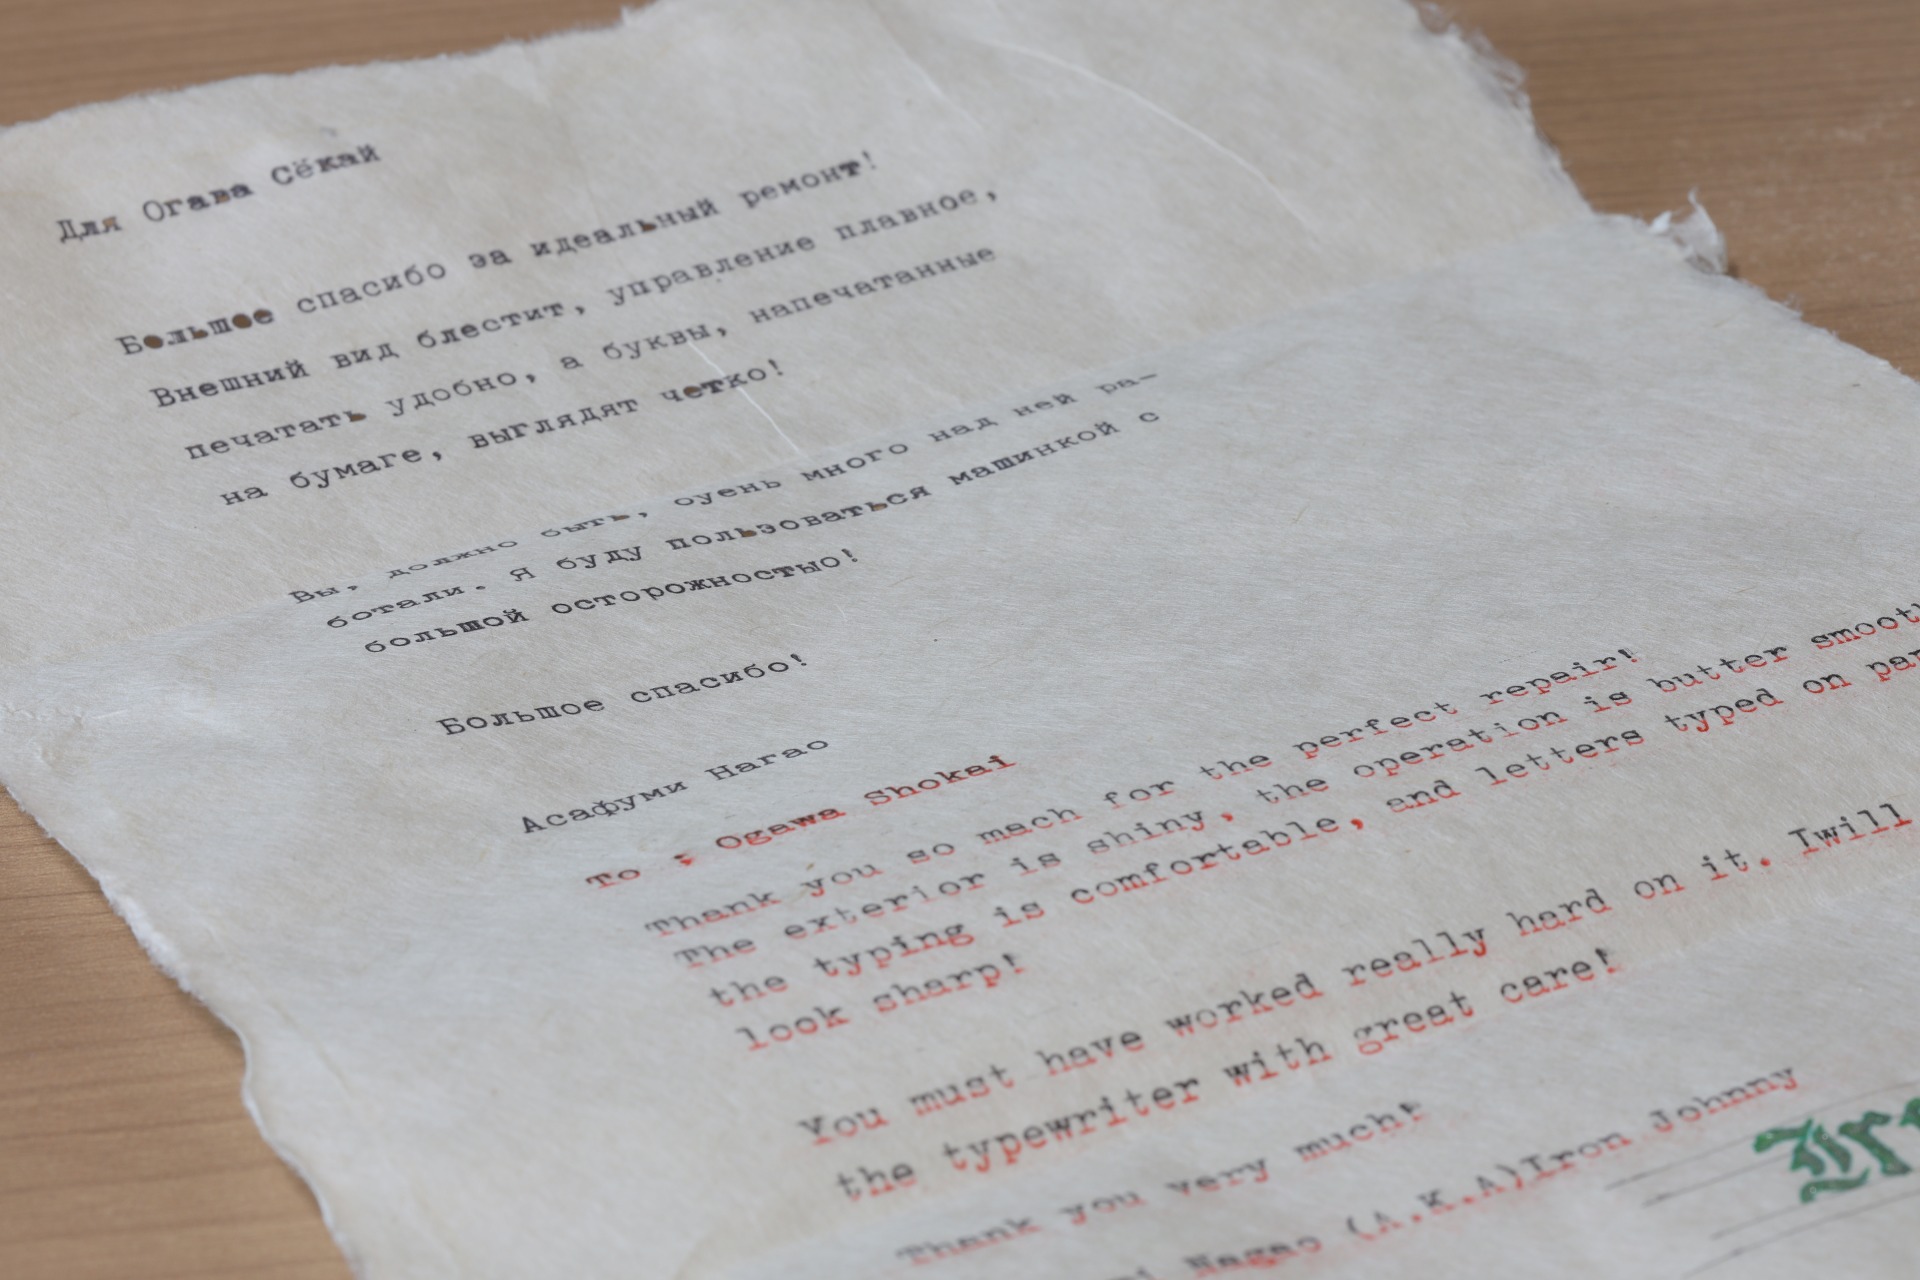 Для Огава Сёкай
Большое спасибо за идеальный ремонт!
Внешний вид блестит, управление плавное,
печатать удобно, а буквы, напечатанные
на бумаге, выглядят четко!
Вы, должно быть, очень много над ней ра-
ботали. Я буду пользоваться машинкой с
большой осторожностью!
Большое спасибо!
Асафуми Нагао
To : Ogawa Shokai
Thank you so mach for the perfect repair!
The exterior is shiny, the operation is butter smooth
the typing is comfortable, and letters typed on
look sharp!
You must have worked really hard on it. Iwill
the typewriter with great care!
Thank you very much!
Nagao (A.K.A)Iron Johnny